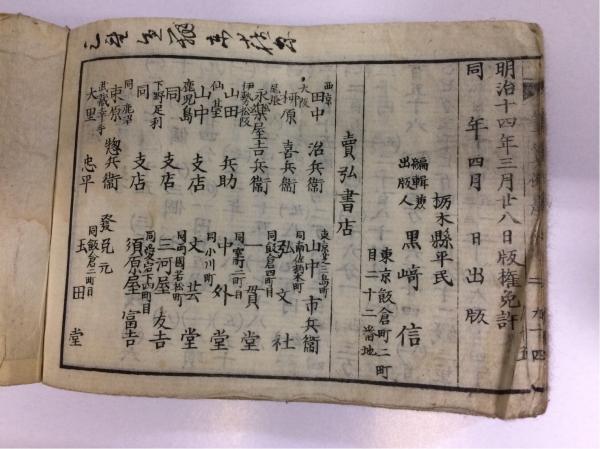 明治十四年三月廿八日版權免許
同年四月 日出版
栃木縣平民
編輯兼
出版人
黒﨑信
東京飯倉町二町
目二十二番地
賣弘書店
西京
田中治兵衛
大阪
柳原喜兵衛
尾張
永樂屋吉兵衛
伊勢松阪
山田兵助
仙臺
山中支店
鹿児島
同支店
下野足利
同支店
同鹿沼
束原惣兵衛
武蔵幸手
大里忠平
東京芝三島町
山中市兵衛
同南佐柄木町
弘文社
同飯倉四町目
一貫堂
中外堂
同小川町
文芸堂
同両國若松町
三河屋友吉
須原屋富吉
發兌元
同飯倉二町目
玉田堂